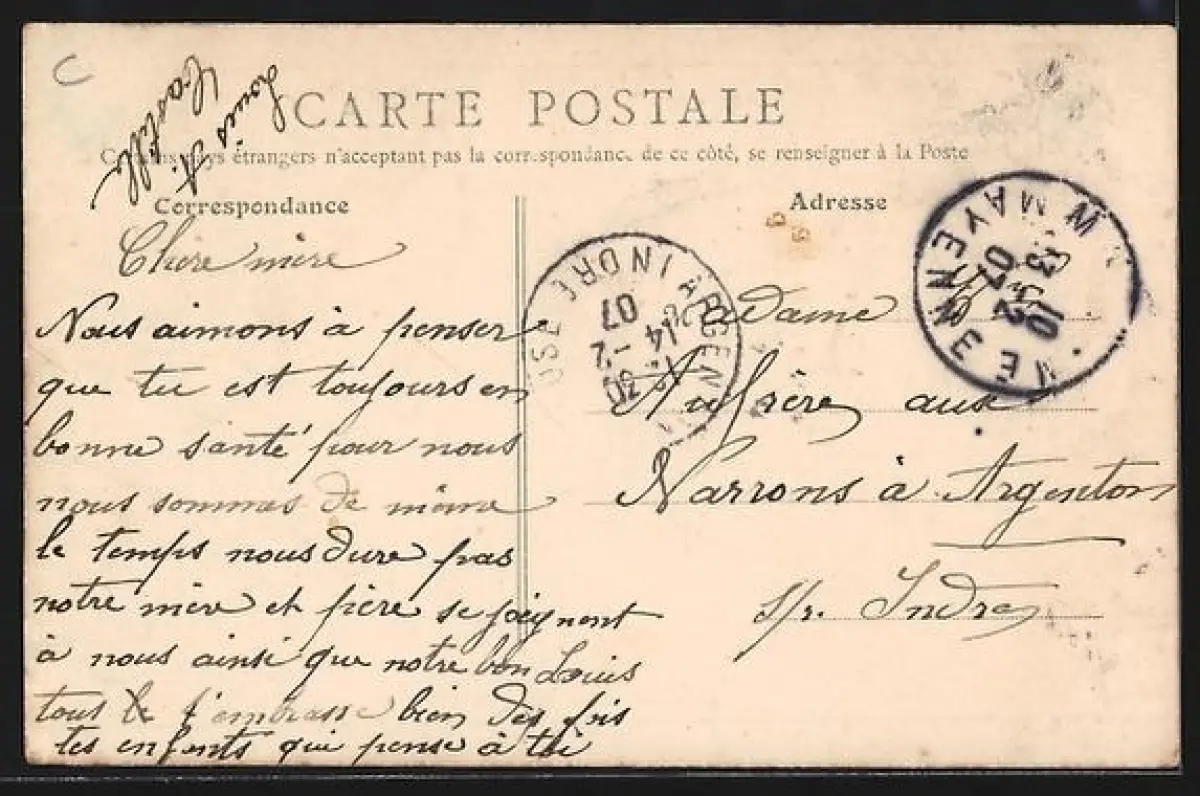 C
Louis A.
CARTE POSTALE
Certains pays étrangers n'acceptant pas la correspondance de ce côté, se renseigner à la Poste
Correspondance
Chère mère
Nous aimons à penser
que tu est toujours en
bonne santé pour nous
nous sommes de même
le temps nous dure pas
notre mère et père se joignent
à nous ainsi que notre bon Louis
tous t'embrasse bien des fois
tes enfants qui pense à toi
Adresse
Madame
Aufrère aux
Narrons à Argenton
s/r. Indre
ARGENTON INDRE
14 30
14 -2
07
MAYENNE
13 10
2
07